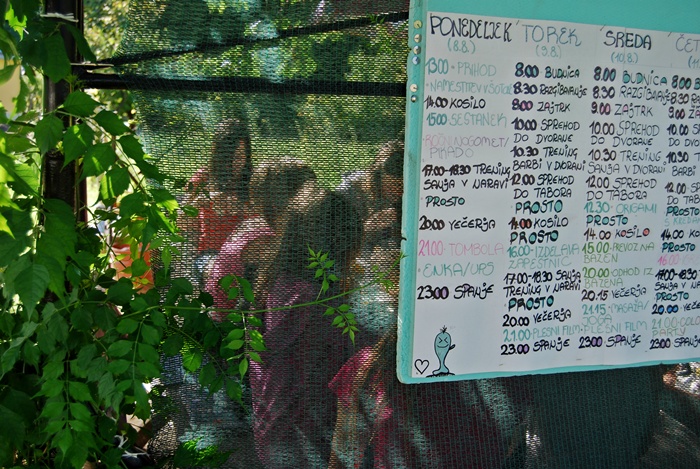 PONEDELJEK
(8.8.)
13.00 - PRIHOD
14.00 KOSILO
15.00 SESTANEK
17.00-18.30 TRENING
SANJA V NARAVI
PROSTO
20.00 VEČERJA
21.00 TOMBOLA
ENKA/URŠ
23.00 SPANJE
TOREK
(9.8.)
8.00 BUDNICA
8.30 RAZGIBAVANJE
9.00 ZAJTRK
10.00 SPREHOD
DO DVORANE
10.30 TRENING
BARBI V DVORANI
12.00 SPREHOD
DO TABORA
PROSTO
14.00 KOSILO
PROSTO
16.00 - IZDELAVA
ZAPESTNIC
17.00-18.30 SANJA
TRENING V NARAVI
PROSTO
20.00 VEČERJA
21.00 PLESNI FILM
23.00 SPANJE
SREDA
(10.8.)
8.00 BUDNICA
8.30 RAZGIBAVANJE
9.00 ZAJTRK
10.00 SPREHOD
DO DVORANE
10.30 TRENING
SANJA V DVORANI
12.00 SPREHOD
DO TABORA
12.30 - ORIGAMI
PROSTO
14.00 KOSILO
15.00 - PREVOZ NA
BAZEN
20.00 ODHOD IZ
BAZENA
20.15 VEČERJA
21.15 - MASAŽA/
PLESNI FILM
23.00 SPANJE
ČET
8.00 B
8.30
9.00 Z
10.00
DO D
10.30
BARBI
12.00
DO T
PROS
14.00
PROS
PROSTO
20.00
23.00